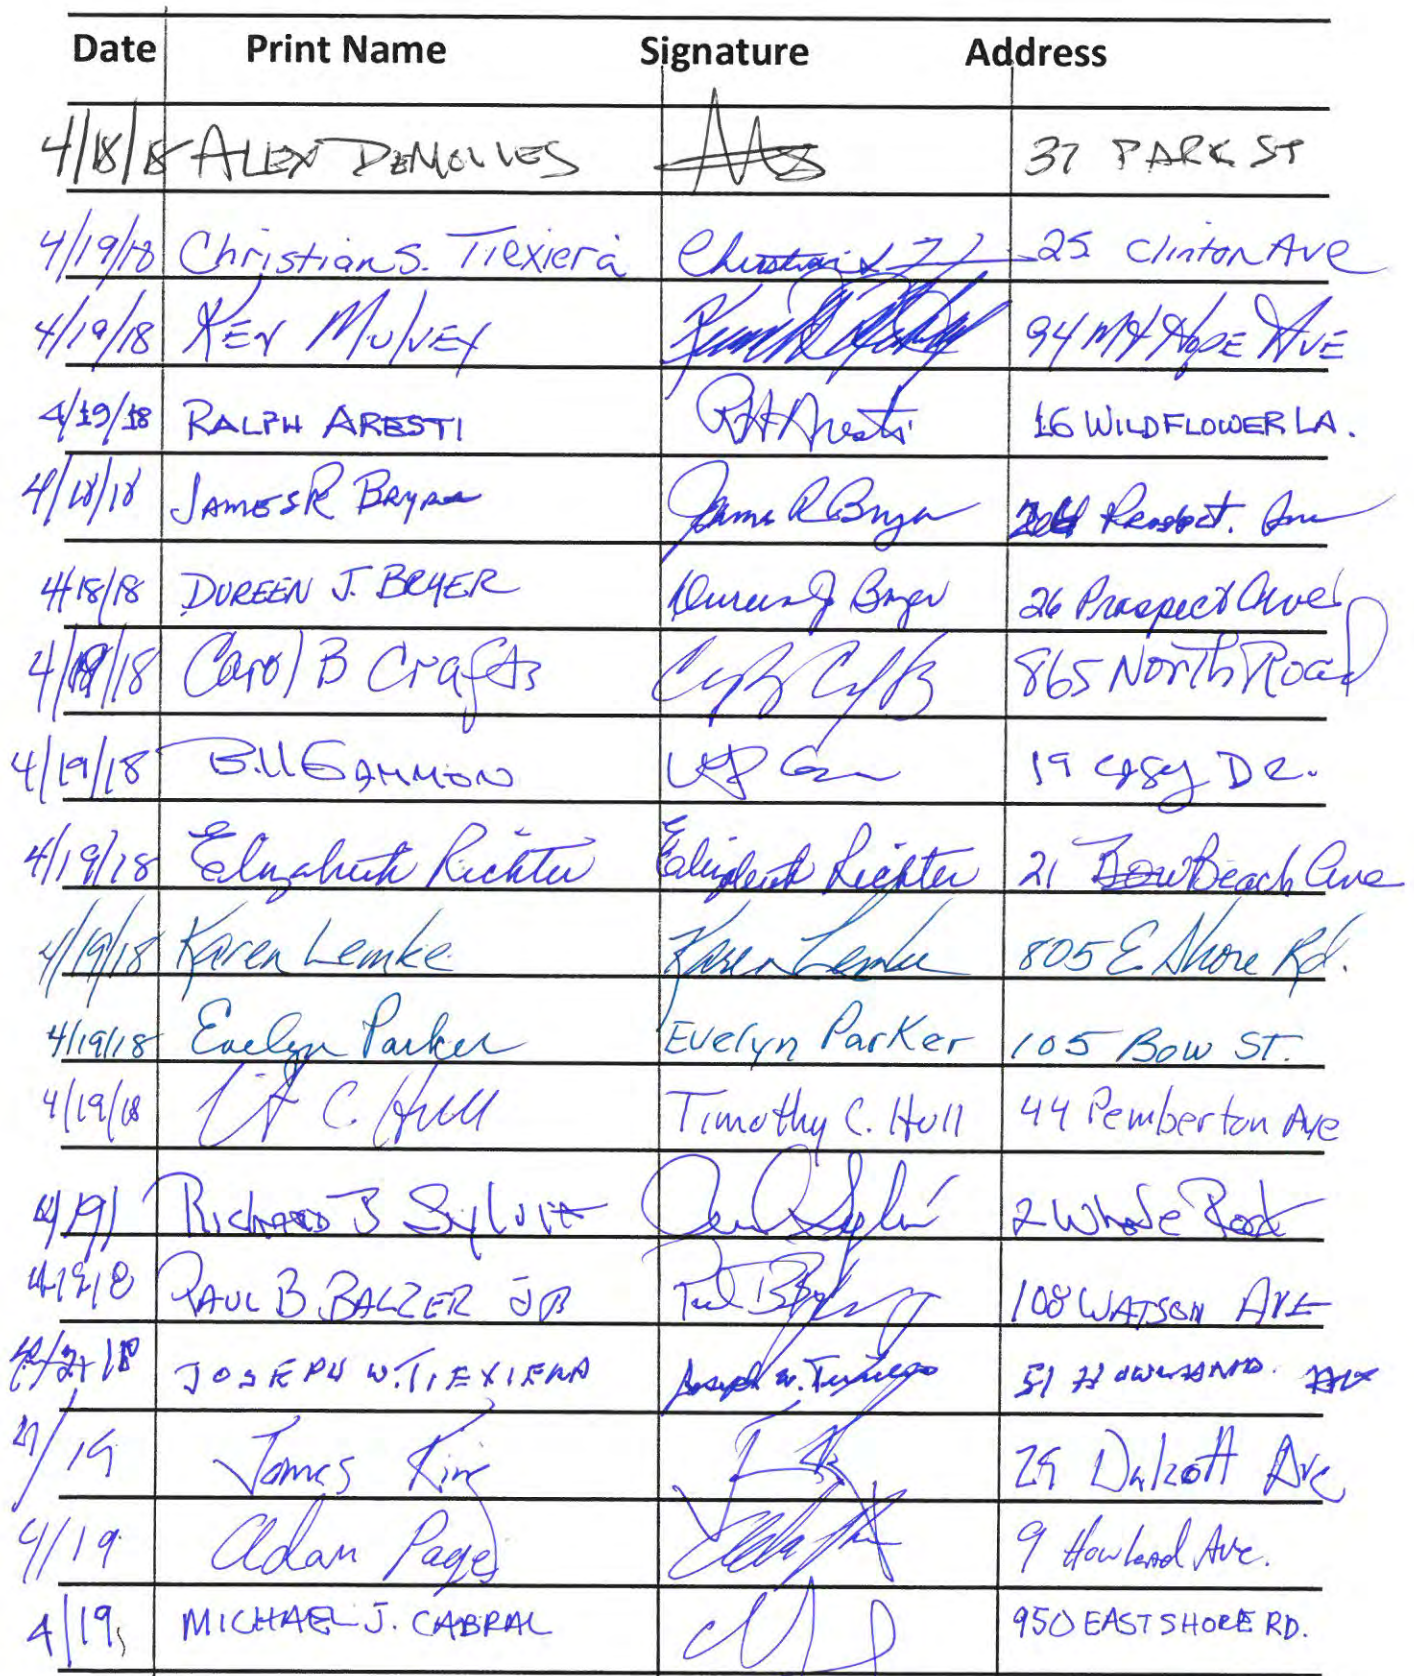 Date Print Name Signature Address
4/18/18 ALEX DEMOLLES 37 PARK ST
4/19/18 Christian S. Tiexiera 25 Clinton Ave
4/19/18 KEN MULVEY 94 Mt Hope AVE
4/19/18 RALPH ARESTI RH Aresti 16 WILDFLOWER LA.
4/18/18 JAMES R BRYER James R Bryer Prospect. Ave
4/18/18 DOREEN J. BRYER Doreen J Bryer 26 Prospect Ave
4/18/18 Carol B Crafts 865 North Road
4/19/18 Bill GAMMON 19 CASEY DR.
4/19/18 Elizabeth Richter Elizabeth Richter 21 Beach Ave
4/19/18 Karen Lemke Karen Lemke 805 E Shore Rd.
4/19/18 Evelyn Parker Evelyn Parker 105 Bow ST.
4/19/18 C. Hull Timothy C. Hull 44 Pemberton Ave
4/19/ RICHARD B Sylvia 2 Whale
4/19/18 PAUL B. BALZER JR 108 WATSON AVE
18 JOSEPH W. TIEXIERA Joseph W. 51 HOWLAND. AVE
4/19 James King Ave
4/19 Adam Page 9 Howland Ave.
4/19, MICHAEL J. CABRAL 950 EAST SHORE RD.